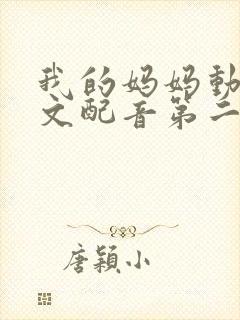 我的妈妈動
文配音第二
唐穎小